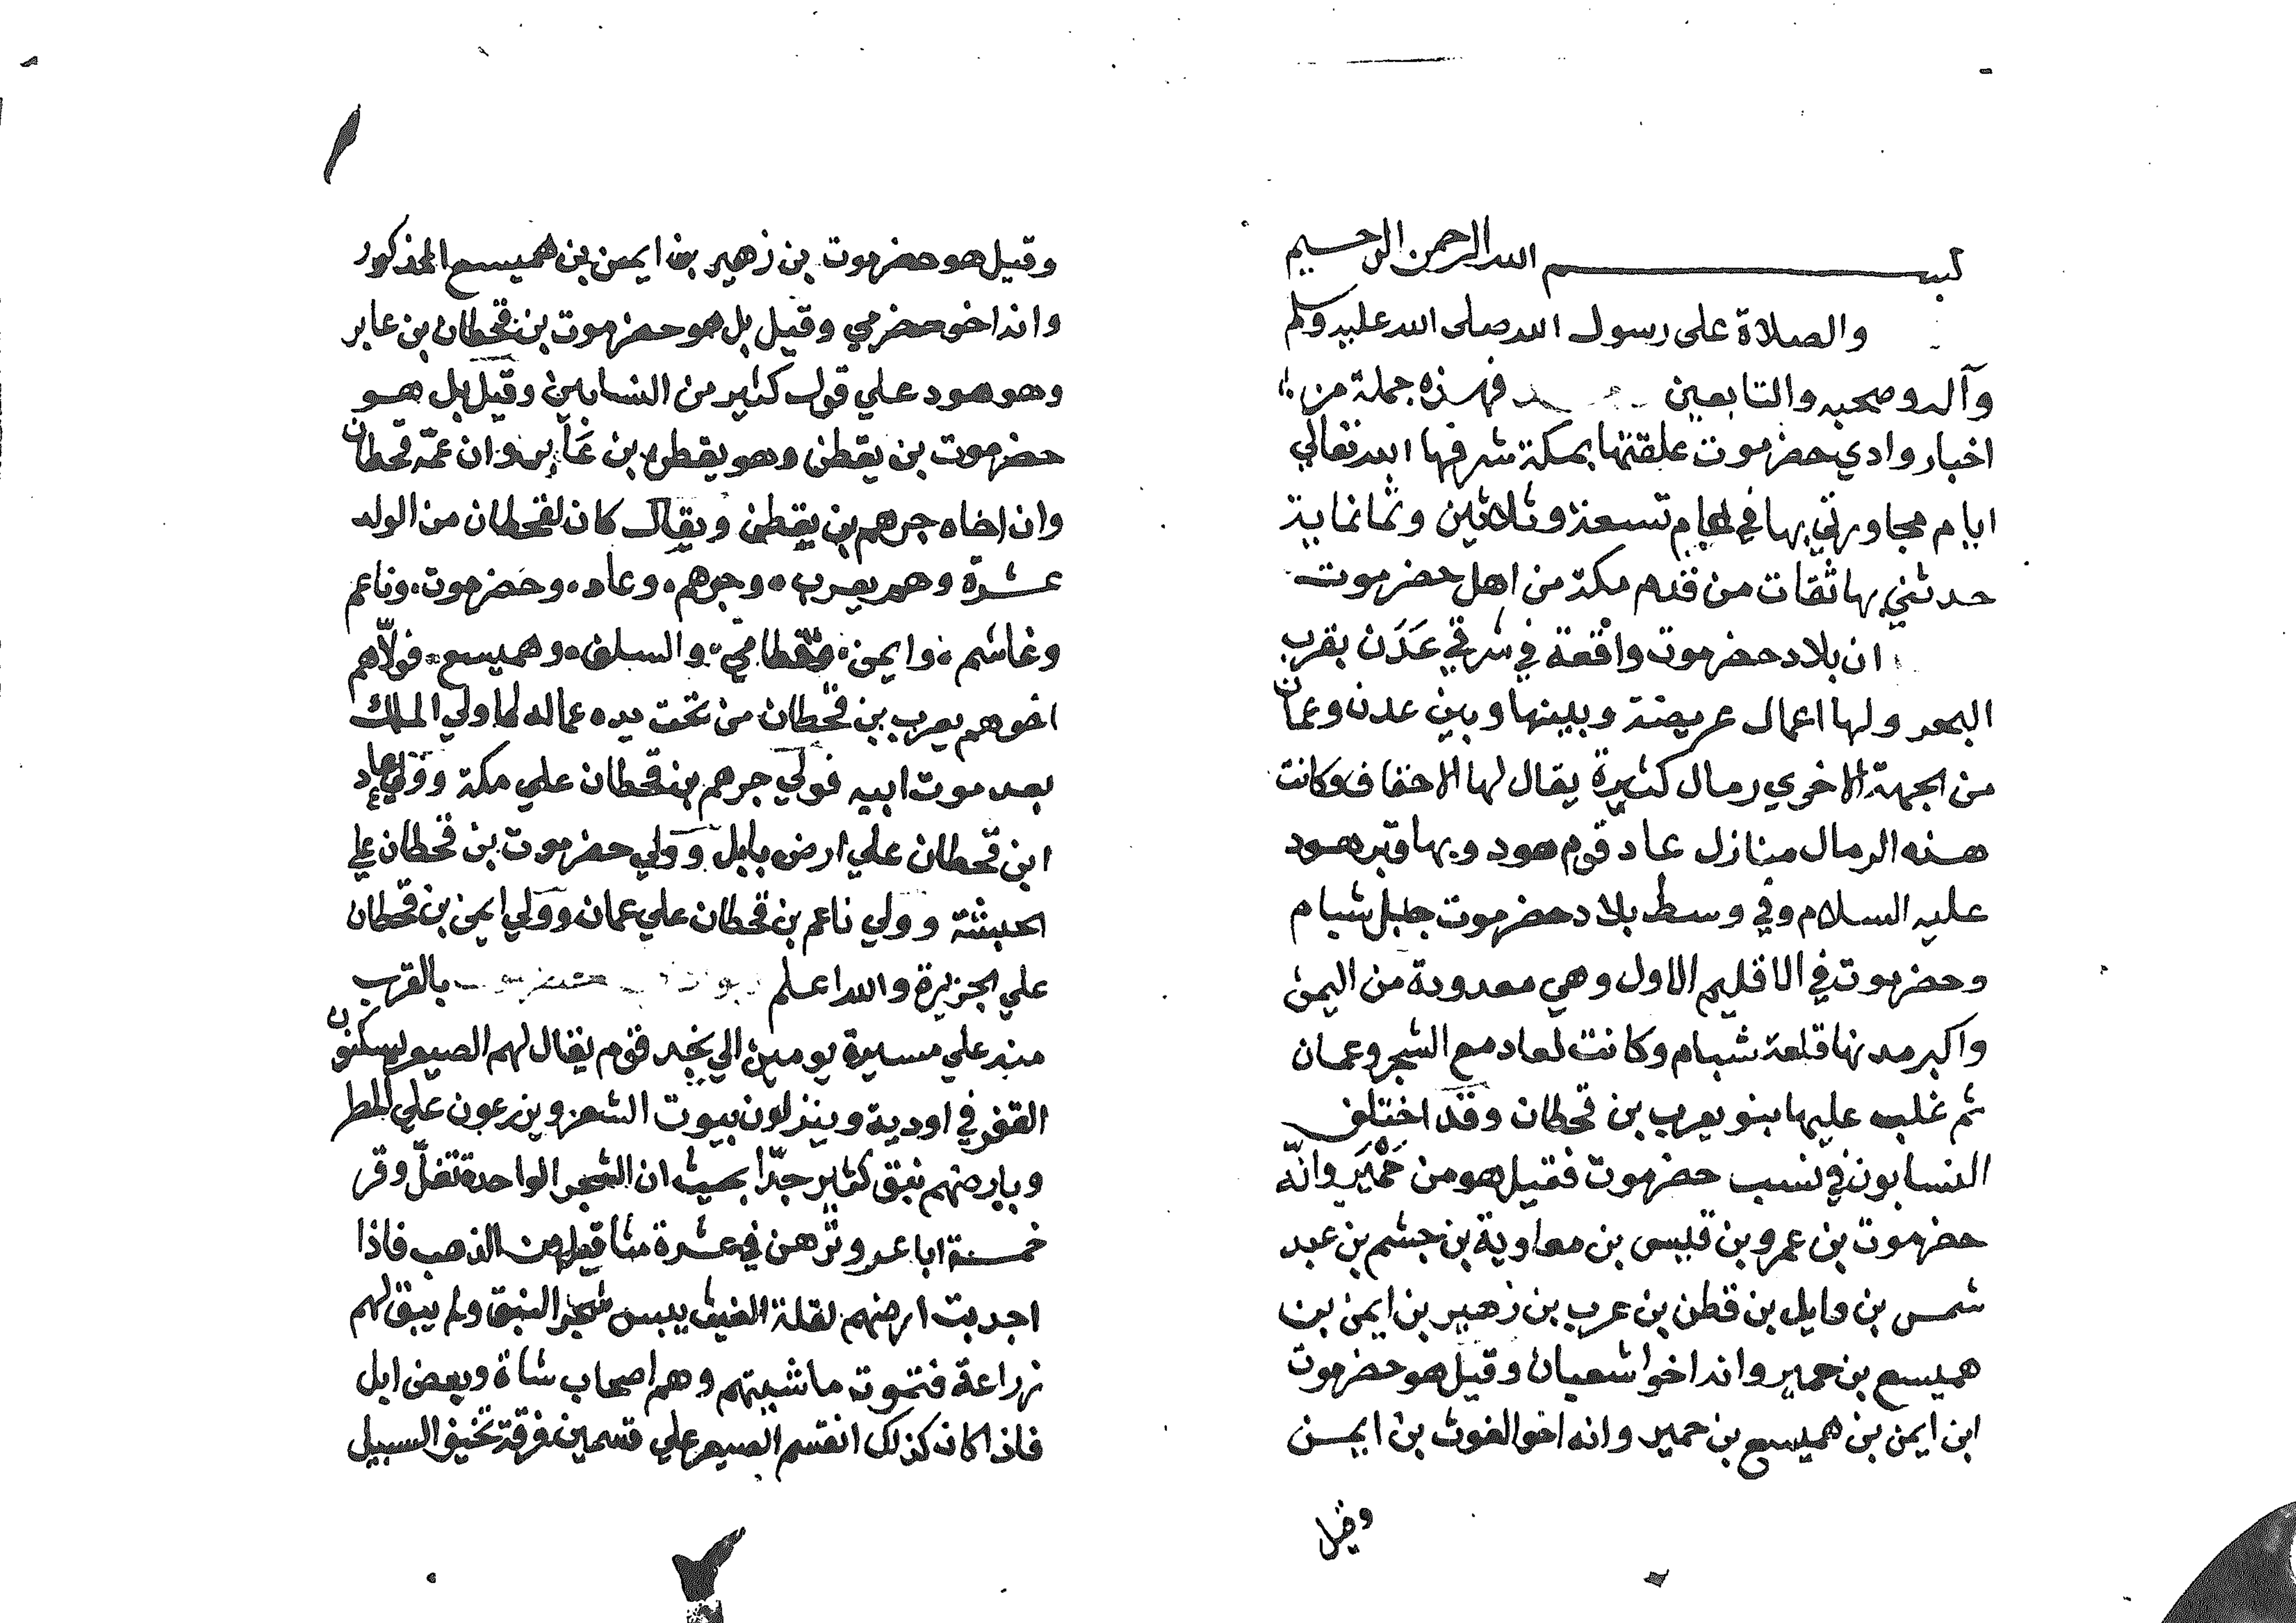 بسم الله الرحمن الرحيم
والصلاة على رسول الله صلى الله عليه وسلم
وآله وصحبه والتابعين فهذه جملة من
اخبار وادي حضرموت علقتها بمكة شرفها الله تعالي
ايام مجاورتي بها في عام تسعة وثلاثين وثمانماية
حدثني بها ثقات من قدم مكة من اهل حضرموت
ان بلاد حضرموت واقعة في شرقي عَدَن بقرب
البحر ولها اعمال عريضة وبينها وبين عدن وعمان
من الجهة الاخري رمال كثيرة يقال لها الاحقاف وكانت
هذه الرمال منازل عاد قوم هود وبها قبر هود
عليه السلام وفي وسط بلاد حضرموت جبل شبام
وحضرموت في الاقليم الاول وهي معدودة من اليمن
واكبر مدنها قلعة شبام وكانت لعاد مع الشحر وعمان
ثم غلب عليها بنو يعرب بن قحطان وقد اختلف
النسابون في نسب حضرموت فقيل هو من حِمْيَر وانّه
حضرموت بن عمرو بن قيس بن معاوية بن جشم بن عبد
شمس بن وايل بن قطن بن عرب بن زهير بن ايمن بن
هميسع بن حمير وانه اخوا شعبان وقيل هو حضرموت
ابن ايمن بن هميسع بن حمير وانه اخو الغوث بن ايمن
وقيل
وقيل هو حضرموت بن زهير بن ايمن بن هميسع المذكور
وانه اخو حضرمي وقيل بل هو حضرموت بن قحطان بن عابر
وهو هود علي قول كثير من النسابين وقيل بل هو
حضرموت بن يقطن وهو يقطن بن عَابر وان عمّه قحطان
وان اخاه جرهم بن يقطن ويقال كان لقحطان من الولد
عشرة وهم يعرب وجرهم وعاد وحضرموت وناعم
وغاشم وايمن وقطامي والسلف وهميسع فولّاهم
اخوهم يعرب بن قحطان من تحت يده عماله لما ولي الملك
بعد موت ابيه فولي جرهم بن قحطان علي مكة وولي عاد
ابن قحطان علي ارض بابل وولي حضرموت بن قحطان علي
الحبشة وولي ناعم بن قحطان علي عمان وولي ايمن بن قحطان
علي الجزيرة والله اعلم حضرموت بالقرب
منه علي مسيرة يومين الي نجد قوم يقال لهم الصيعر يسكنون
القفر في اودية وينزلون بيوت الشعر ويزرعون علي المطر
وبارضهم نبق كثير جدّا بحيث ان الشجر الواحدة تغلّ وقر
خمسة اباعر وترهن في عشرة مثاقيل من الذهب فاذا
اجدبت ارضهم لقلة الغيث يبس شجر النبق ولم يبق لهم
زراعة فتموت ماشيتهم وهم اصحاب شاة وبعض ابل
فاذا كان كذلك انقسم الصيعر علي قسمين فرقة تخيف السبيل